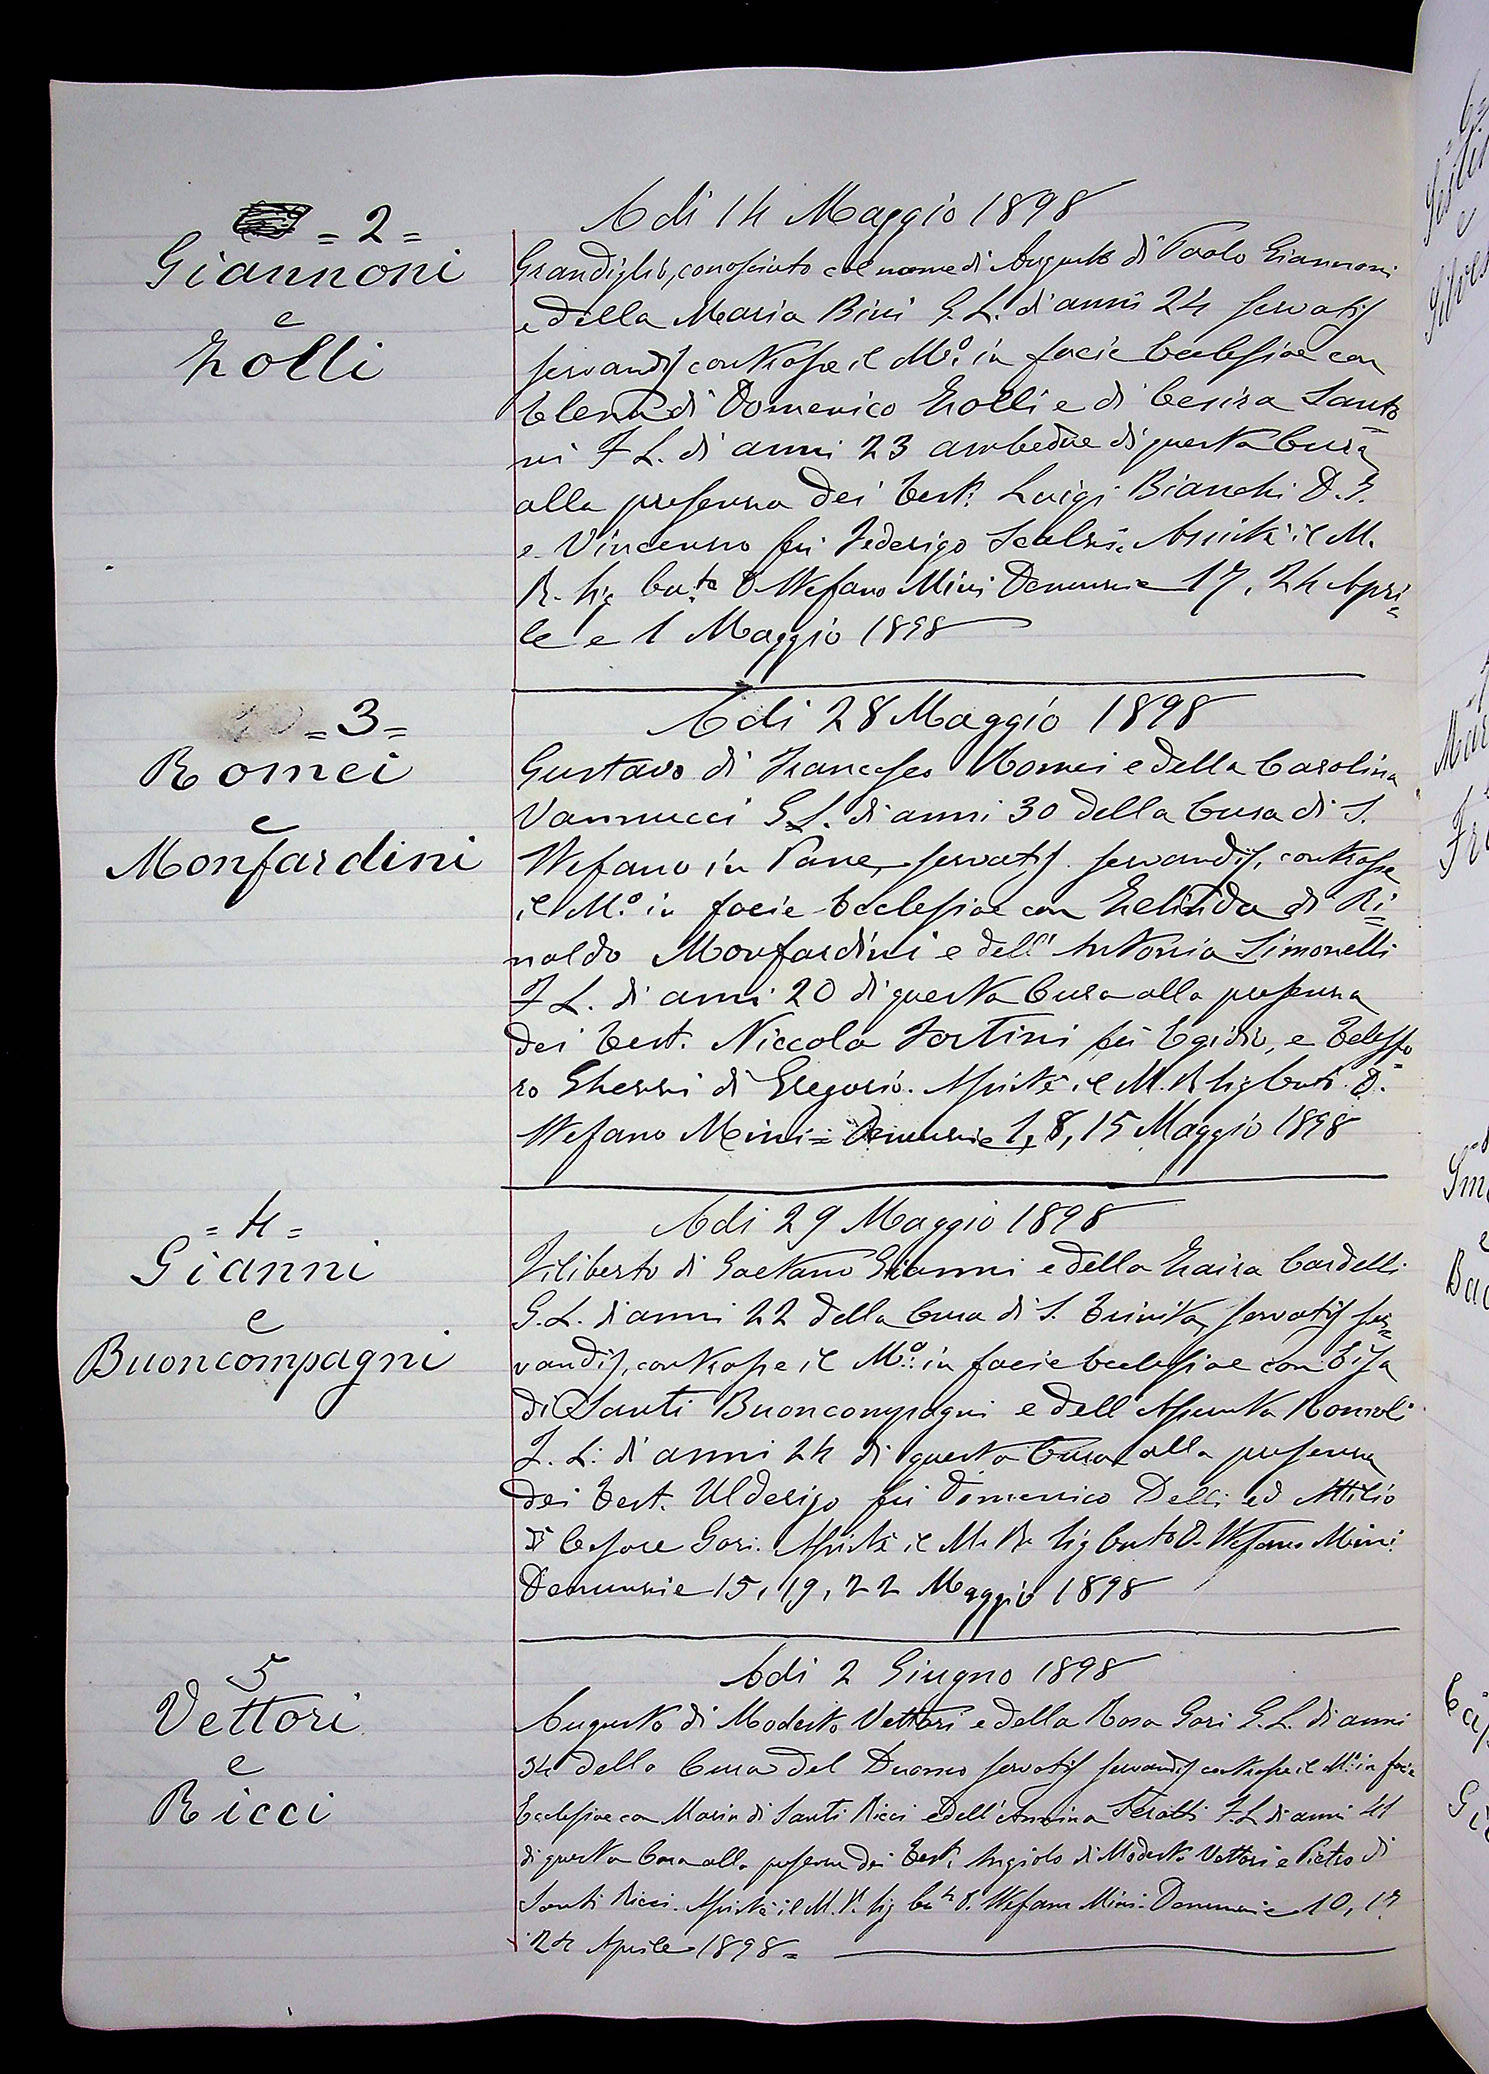 = 2 =
Giannoni
e
Zolli
Adi 14 Maggio 1898
Grandiglio, conosciuto col nome di Augusto di Paolo Giannoni
e della Maria Bini G. L. di anni 24 servatis
servandis contrasse il M.º in facie Ecclesiae con
Elena di Domenico Zolli e di Cesira Santi=
ni F. L. di anni 23 ambedue di questa Cura
alla presenza dei Test. Luigi Bianchi D. G.
e Vincenzo fu Federigo Assistè il M.
R. Sig. Cur.to D. Stefano Mini Denunzie 17, 24 Apri=
le e 1 Maggio 1898
= 3 =
Romei
e
Monfardini
Adi 28 Maggio 1898
Gustavo di Francesco Romei e della Carolina
Vannucci G. L. di anni 30 della Cura di S.
Stefano in Pane, servatis servandis, contrasse
il M.º in facie Ecclesiae con Zelinda di Ri=
naldo Monfardini e dell' Antonia Simonelli
F. L. di anni 20 di questa Cura alla presenza
dei Test. Niccola Fortini fu Egidio, e Telesfo
ro Gherri di Gregorio. Assistè il M. R. Sig. Curto D.
Stefano Mini = Denunzie 1, 8, 15 Maggio 1898
= 4 =
Gianni
e
Buoncompagni
Adi 29 Maggio 1898
Filiberto di Gaetano Gianni e della Zaira Cardelli
G. L. di anni 22 della Cura di S. Trinita, servatis ser=
vandis, contrasse il M.º in facie Ecclesiae con
di Santi Buoncompagni e dell' Assunta Romoli
F. L. di anni 24 di questa Cura alla presenza
dei Test. Ulderigo fu Domenico Delli ed Attilio
di Cesare Gori. Assistè il M. R. Sig Curto D. Stefano Mini
Denunzie 15, 19, 22 Maggio 1898
5
Vettori
e
Ricci
Adi 2 Giugno 1898
Augusto di Modesto Vettori e della Rosa Gori G. L. di anni
34 della Cura del Duomo servatis servandis contrasse il M.º in facie
Ecclesiae con Maria di Santi Ricci e dell' Annina F. L. di anni 41
di questa Cura alla presenza dei Test. Angiolo di Modesto Vettori e Pietro di
Santi Ricci. Assistè il M. R. Sig Cur.to D. Stefano Mini. Denunzie 10, 17
24 Aprile 1898 =